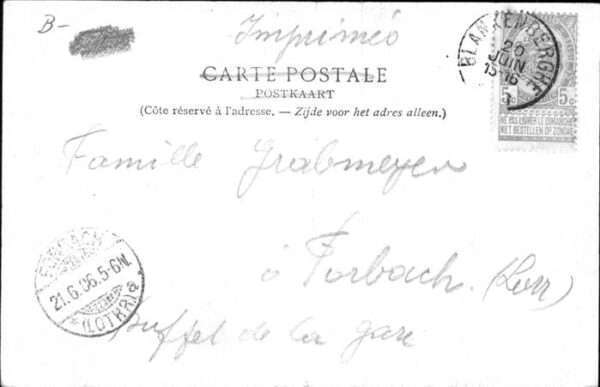 B-
Imprimés
CARTE POSTALE
POSTKAART
(Côte réservé à l'adresse. — Zijde voor het adres alleen.)
BLANKENBERGHE
20
JUIN
15-16
5c 5c
NE PAS LIVRER LE DIMANCHE
NIET BESTELLEN OP ZONDAG
Famille Grabmeyer
à Forbach. (Lorr)
Buffet de la gare
FORBACH
21.6.06.5-6N.
*(LOTHR) a